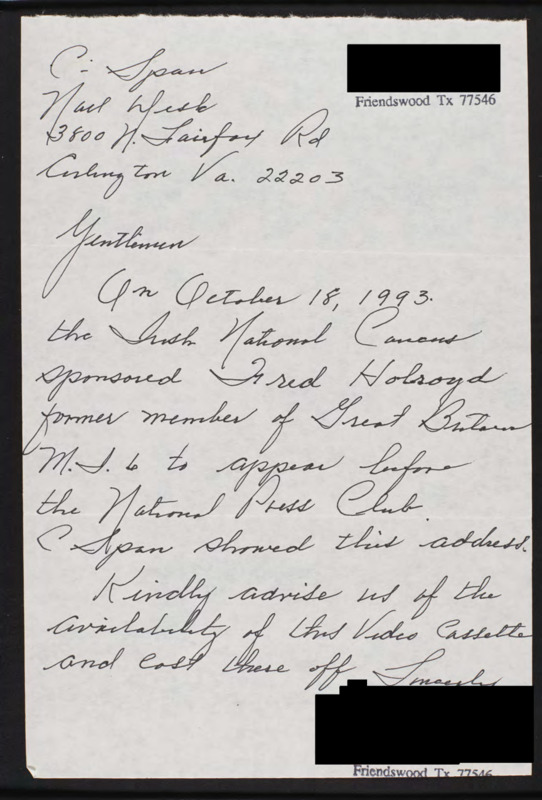 C-Span
Friendswood Tx 77546
Mail Desk
3800 N. Fairfax Rd
Arlington Va. 22203
Gentlemen
On October 18, 1993.
the Irish National Caucus
sponsored Fred Holroyd
former member of Great Britain
M.I.6 to appear before
the National Press Club
C Span showed this address.
Kindly advise us of the
availability of this Video Cassette
and cost there off Sincerely
Friendswood Tx 77546